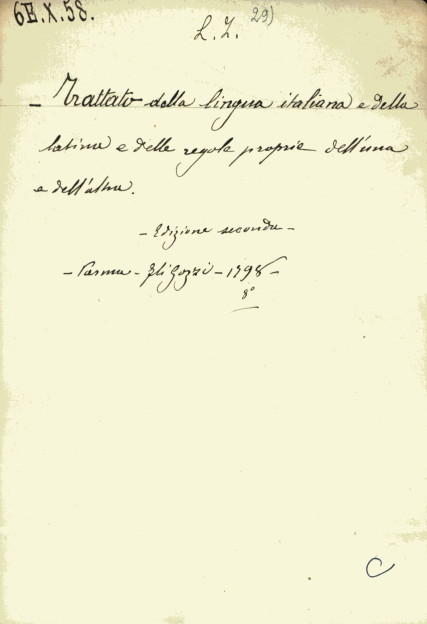 6E.X.58.
L. Z. 29)
- Trattato della lingua italiana e della
latina e delle regole proprie dell'una
e dell'altra.
- Edizione seconda -
- Parma - Fli Gozzi - 1798 -
8°
C